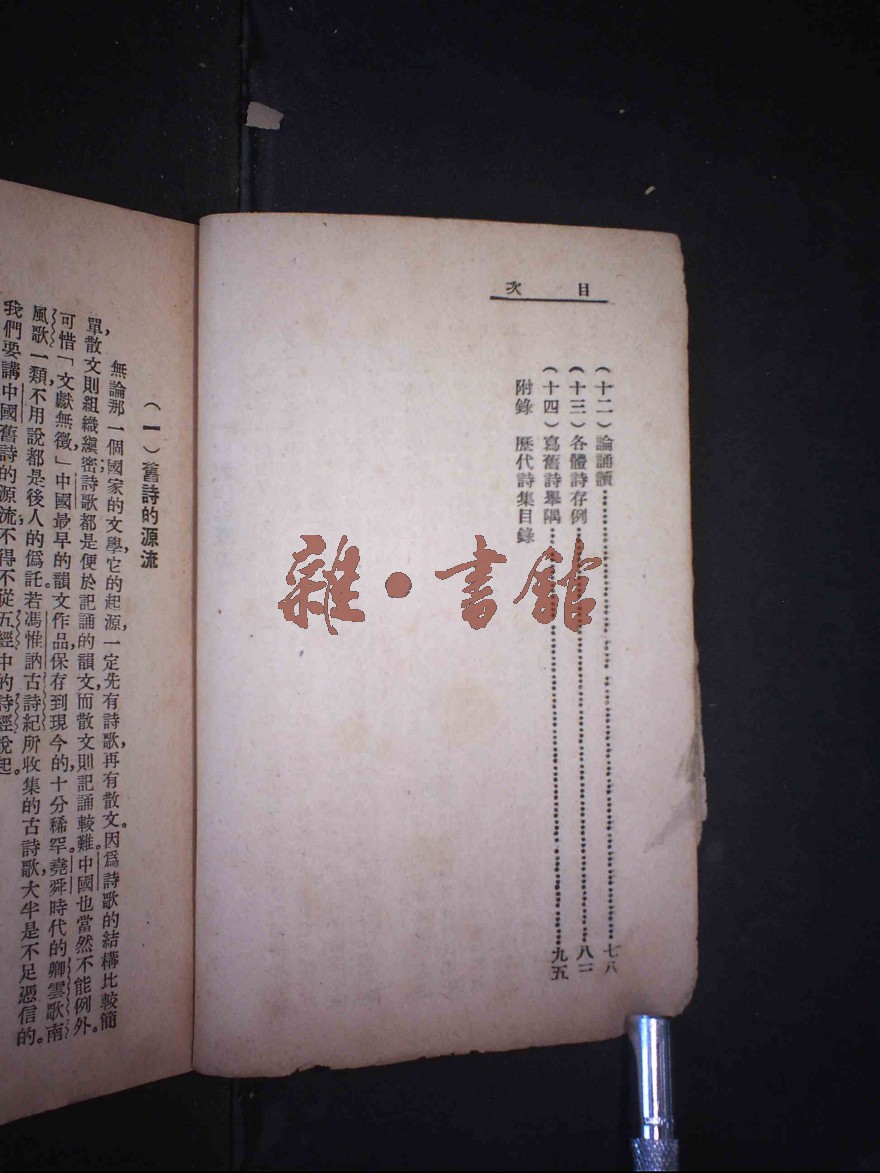 目次
(十二)論誦讀……七八
(十三)各體詩存例……八一
(十四)寫舊詩舉隅……九五
附錄 歷代詩集目錄
雜·書館
(一)舊詩的源流
無論那一個國家的文學,它的起源,一定先有詩歌,再有散文。因爲詩歌的結構比較簡
單,散文則組織縝密;詩歌都是便於記誦的韻文,而散文則記誦較難。中國也當然不能例外。
可惜「文獻無徵,」中國最早的韻文作品,保存到現今的,十分稀罕。堯舜時代的卿雲歌南
風歌一類,不用說都是後人的僞託。若馮惟訥古詩紀所收集的古詩歌,大半是不足憑信的。
我們要講中國舊詩的源流,不得不從五經中的詩經說起。